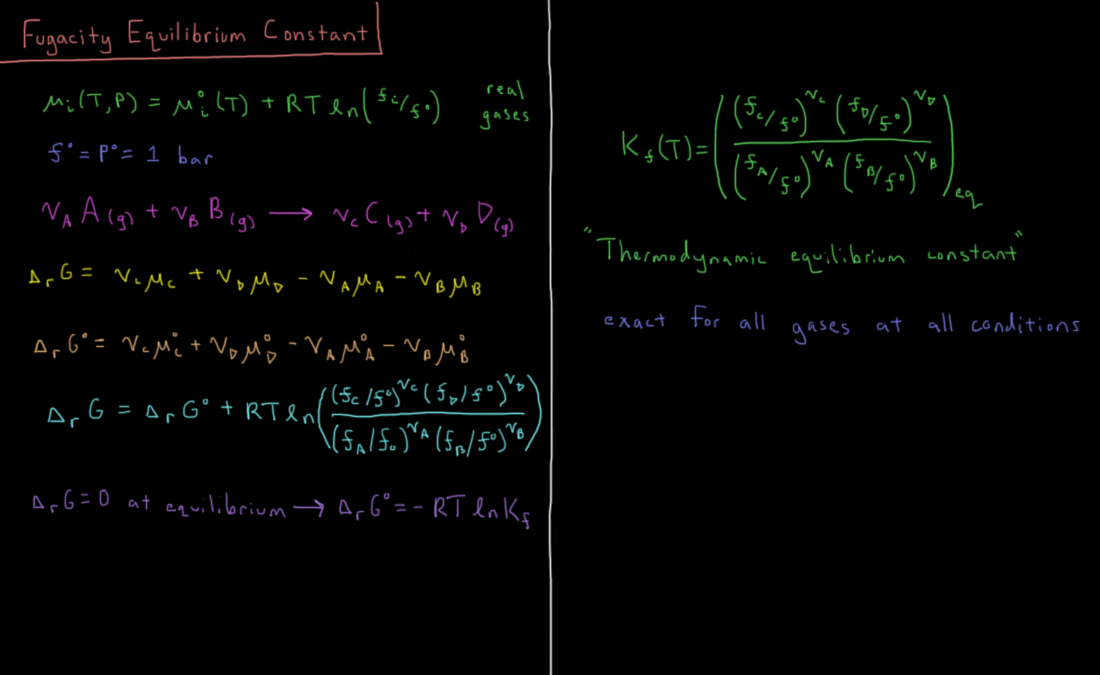 Fugacity Equilibrium Constant
μᵢ(T,P) = μᵢ°(T) + RT ln(fᵢ/f°) real gases
f° = P° = 1 bar
ν_A A(g) + ν_B B(g) → ν_C C(g) + ν_D D(g)
Δ_r G = ν_C μ_C + ν_D μ_D − ν_A μ_A − ν_B μ_B
Δ_r G° = ν_C μ_C° + ν_D μ_D° − ν_A μ_A° − ν_B μ_B°
Δ_r G = Δ_r G° + RT ln( (f_C/f°)^ν_C (f_D/f°)^ν_D / (f_A/f₀)^ν_A (f_B/f°)^ν_B )
Δ_r G = 0 at equilibrium → Δ_r G° = − RT ln K_f
K_f(T) = ( (f_C/f°)^ν_C (f_D/f°)^ν_D / (f_A/f°)^ν_A (f_B/f°)^ν_B )_eq
"Thermodynamic equilibrium constant"
exact for all gases at all conditions